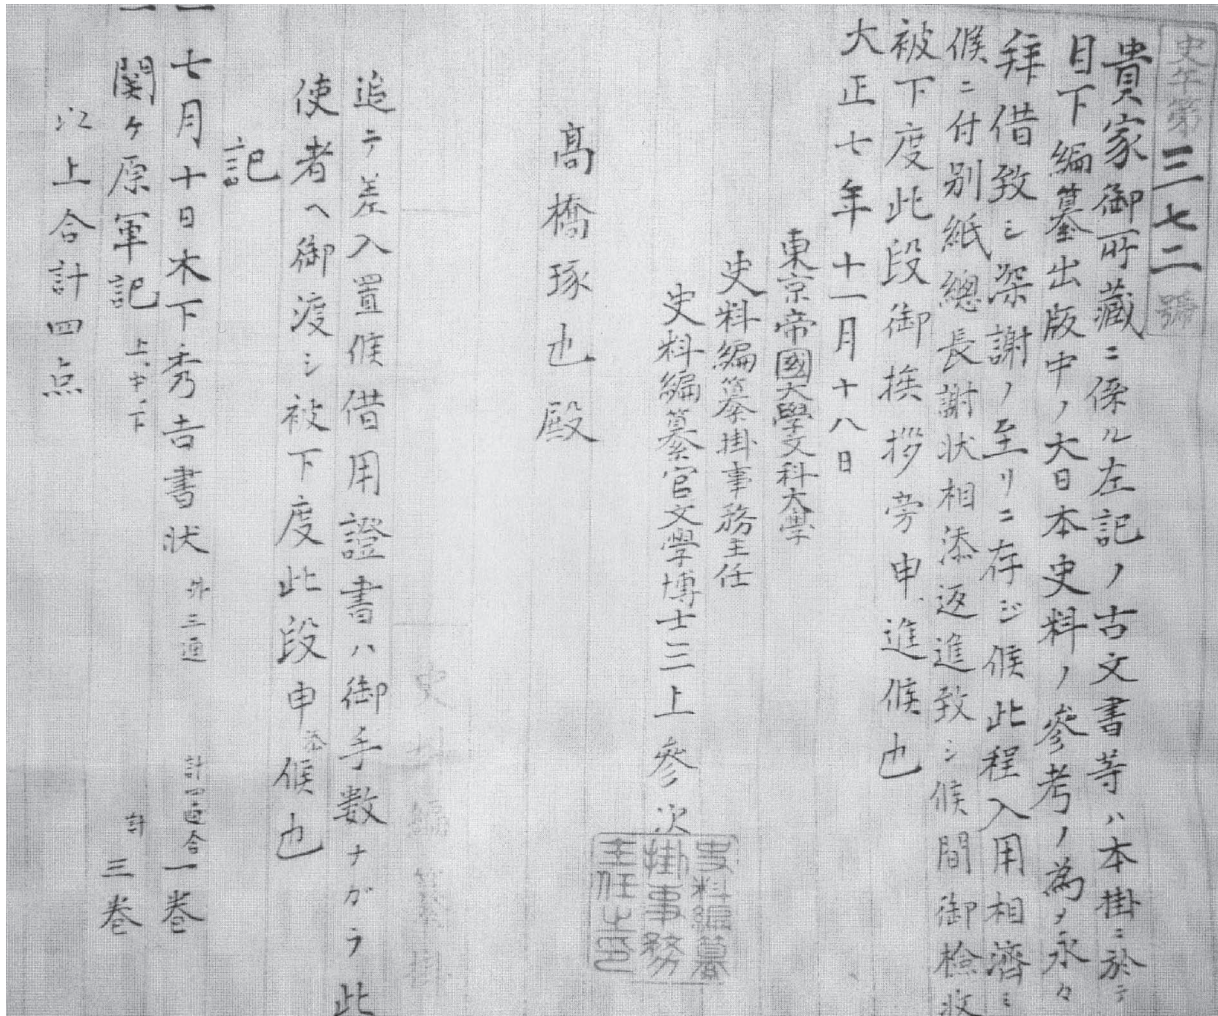 史午第三七二號
貴家御所藏ニ係ル左記ノ古文書等ハ本掛ニ於テ
目下編纂出版中ノ大日本史料ノ參考ノ為メ永々
拜借致シ深謝ノ至リニ存ジ候此程入用相濟ミ
候ニ付別紙總長謝状相添返進致シ候間御檢收
被下度此段御挨拶旁申進候也
大正七年十一月十八日
東京帝國大學文科大學
史料編纂掛事務主任
史料編纂官文學博士三上參次
史料編纂
掛事務
主任之印
髙橋琢也殿
史料編纂掛
追テ差入置候借用證書ハ御手数ナガラ此
使者ヘ御渡シ被下度此段申添候也
記
一七月十日木下秀吉書状 外三通 計四通合一巻
一関ケ原軍記 上中下 計三巻
以上合計四点